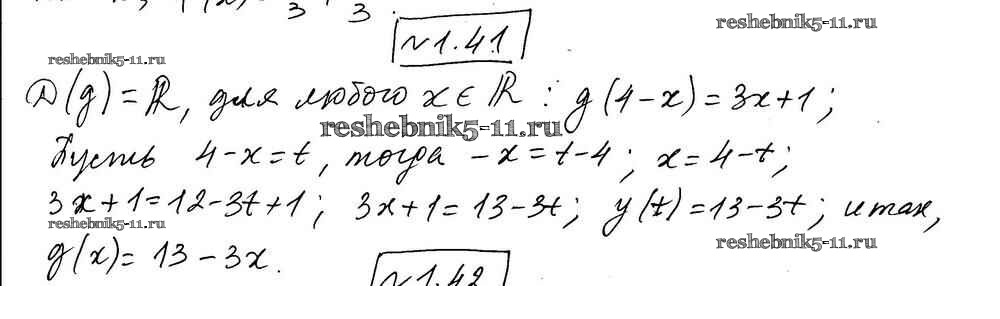 3 3 .
№1.41
reshebnik5-11.ru
reshebnik5-11.ru
D(g) = ℝ, для любого x ∈ ℝ : g(4-x) = 3x+1;
reshebnik5-11.ru
Пусть 4-x=t, тогда -x=t-4; x=4-t;
3x+1=12-3t+1; 3x+1=13-3t; y(t)=13-3t; итак,
reshebnik5-11.ru
reshebnik5-11.ru
g(x)= 13-3x.
№1.42